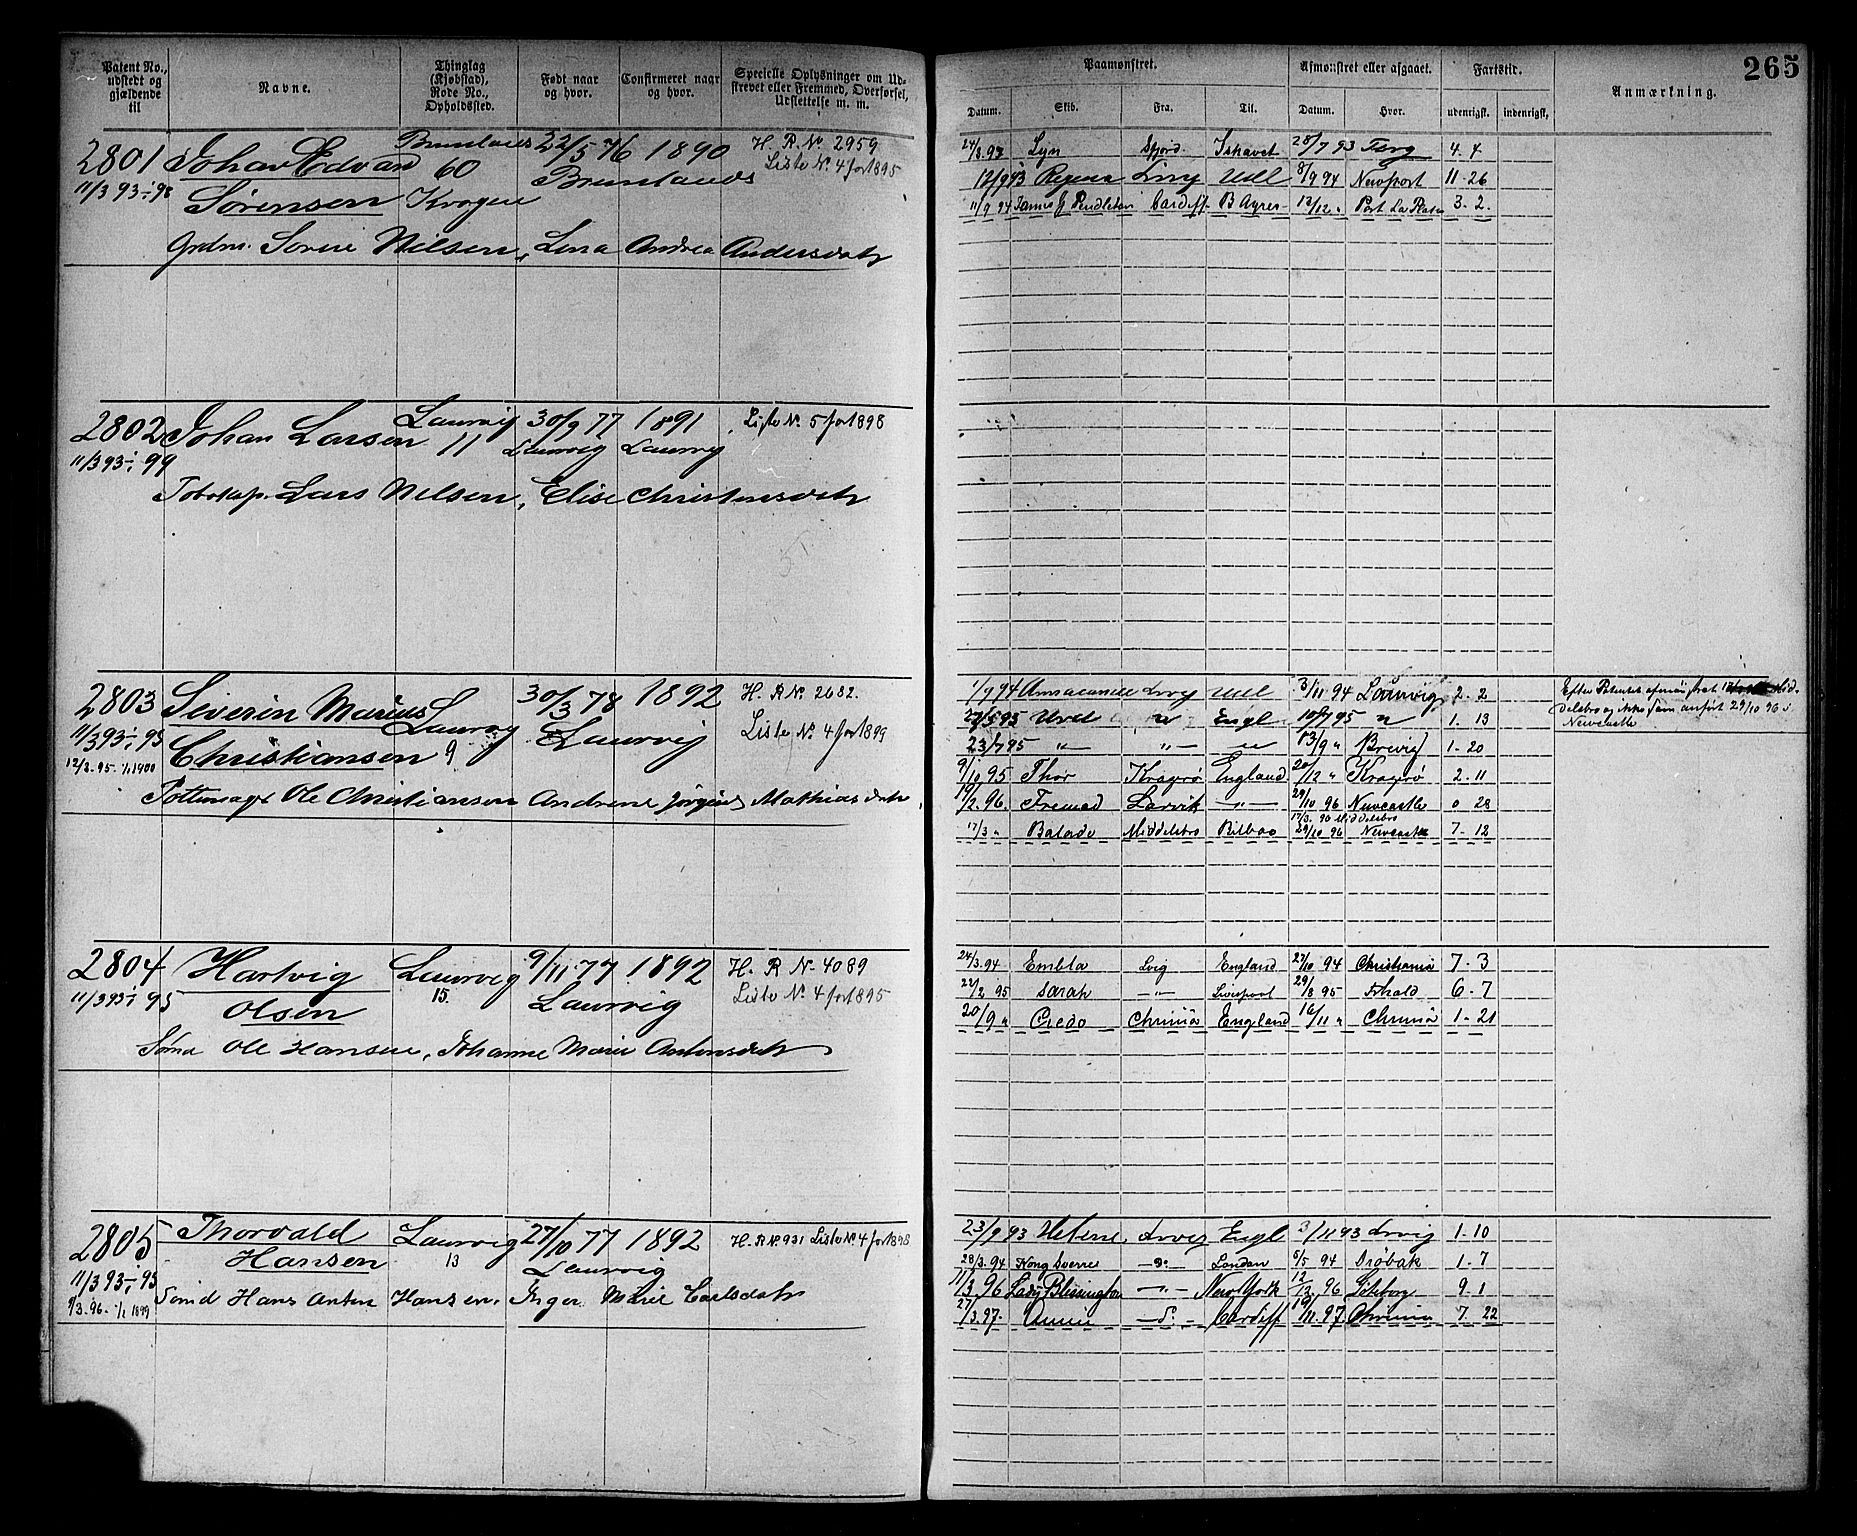 265
Patent No., udstedt og gjældende til
Navne.
Thinglag (Kjøbstad), Rode No., Opholdssted.
Født naar og hvor.
Confirmeret naar og hvor.
Specielle Oplysninger om Udskrevet eller Fremmed, Overførsel, Udslettelse m. m.
Paamønstret.
Afmønstret eller afgaaet.
Fartstid.
Anmærkning.
Datum. Skib. Fra. Til. Datum. Hvor. udenrigsk, indenrigsk,
2801 Johan Edvard Brunlanes 22/5 76 1890 H. R. No 2959
11/3 93 60 Brunlanes Liste No 4 for 1895
Sørensen Kragerø
Grdm. Sören Nilsen, Lina Andrea Andersdatr
24/3 93 Lyn Sfjord Ishavet 28/7 93 4. 4
12/9 93 Regina Lvig Udl 8/9 94 Newport 11 - 26
11/9 94 James G Pendleton Cardiff B Ayres 12/12 " Port La Plata 3. 2.
2802 Johan Larsen Laurvig 30/9 77 1891 Liste No 5 for 1898
11/3 93 - 99 11 Laurvig Laurvig
Lars Nilsen, Elise Christensdatr
2803 Severin Marius Laurvig 30/3 78 1892 H. R No. 2682.
11/3 93 - 95 9 Laurvig Liste No 4 for 1899
Christiansen
12/3. 95 - 1/1 1900
Pottemager Ole Christiansen Andrine Jørgine Mathiasdatr
1/9 94 Lvig Udl 3/11 94 Laurvig 2 - 2
27/5 95 Urd " Engl 10/7 95 " 1. 13
23/7 95 " " " 13/9 " Brevig 1 - 20
9/10 95 Thor Kragerø England 20/12 " Kragerø 2 - 11
19/2. 96. Fremad Larvik - " - 29/10 96 Newcastle 0 28
17/3. 96 Middelsbro
17/3 " Middelsbro Bilbao 29/10 96 Newcastle 7 - 12
Efter Patentet
delsbro og ikke som anført 29/10 96 i
Newcastle
2804 Hartvig Laurvig 9/11 77 1892 H. R N. 4089
11/3 93 - 95 15. Laurvig Liste No 4 for 1895
Olsen
Ole Hansen, Johanne Marie Antonsdatr
24/3. 94 Embla Lvig England 27/10 94 Christiania 7 - 3
22/2 95 Sarah - " - Liverpool 29/8 95 Frhald 6 - 7
20/9 " Credo Chrania England 16/11 " Chrania 1 - 21
2805 Thorvald Laurvig 27/10 77 1892 H. R No 931 Liste No 4 for 1898
Hansen 13 Laurvig
11/3 93 - 95
9/3. 96. - 1/1 1899 Smd Hans Anton Hansen, Inger Marie Carlsdatr
23/9 93 Helene Lvig Engl 3/11 93 Lvig 1 - 10
28/3. 94 Kong Sverre - " - London 5/5 94 Drøbak 1 - 7
11/3. 96 Lady Blessington - " - New York 12/12 96 Göteborg 9 1
27/3. 97. Annie - d. - Cardiff 16/11. 97. Chrania 7. 22